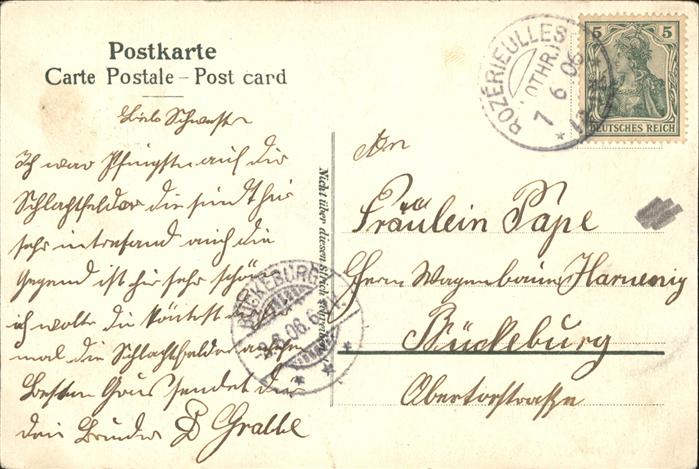 Postkarte
Carte Postale – Post card
Liebe Schwester
Ich war Pfingsten auf die
Schlachtfelder die sind hir
sehr intresand auch die
gegend ist hir sehr schön
ich wolte du köntest
mal die Schlachtfelder ansehen
Besten Gruss sendet dir
dein Bruder Gralle
Nicht über diesen Strich
ROZÉRIEULLES
(LOTHR)
7 6 06
DEUTSCHES REICH
5 5
An
Fräulein Pape
Herrn Wagenbauer
Bückeburg
Obertorstraße
BÜCKEBURG
8.6.06.